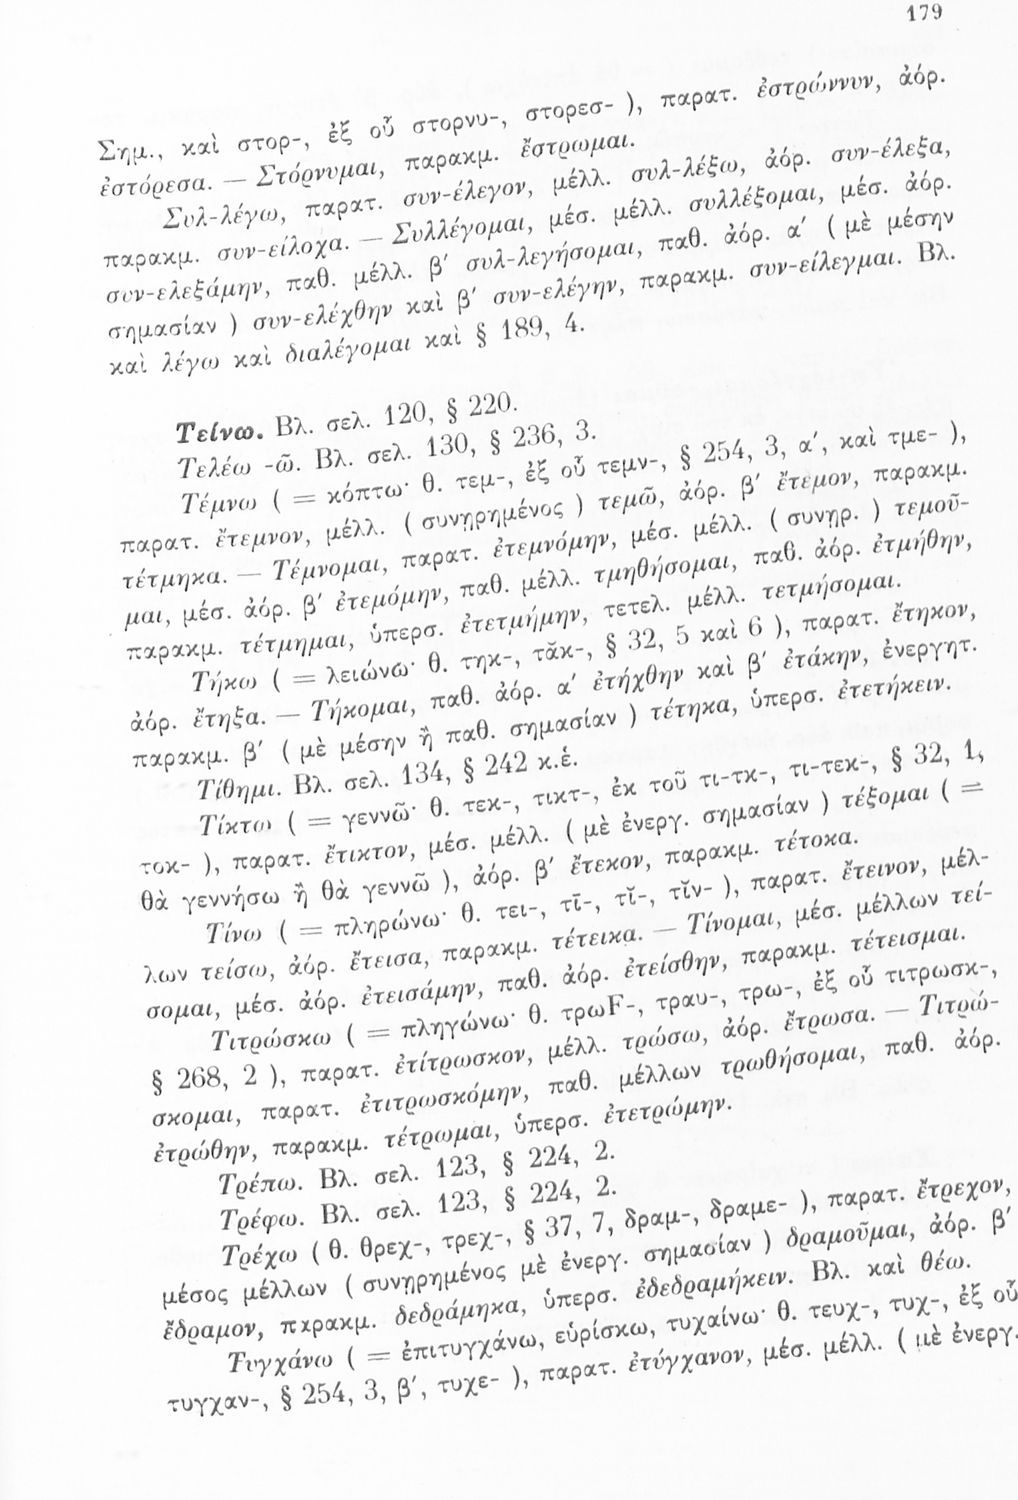 179
Σημ., καὶ στορ-, ἐξ οὗ στορνυ-, στορεσ- ), παρατ. ἐστρώννυν, ἀόρ.
ἐστόρεσα. — Στόρνυμαι, παρακμ. ἔστρωμαι.
Συλ-λέγω, παρατ. συν-έλεγον, μέλλ. συλ-λέξω, ἀόρ. συν-έλεξα,
παρακμ. συν-είλοχα. — Συλλέγομαι, μέσ. μέλλ. συλλέξομαι, μέσ. ἀόρ.
συν-ελεξάμην, παθ. μέλλ. β΄ συλ-λεγήσομαι, παθ. ἀόρ. α΄ ( μὲ μέσην
σημασίαν ) συν-ελέχθην καὶ β΄ συν-ελέγην, παρακμ. συν-είλεγμαι. Βλ.
καὶ λέγω καὶ διαλέγομαι καὶ § 189, 4.
Τείνω. Βλ. σελ. 120, § 220.
Τελέω -ῶ. Βλ. σελ. 130, § 236, 3.
Τέμνω ( = κόπτω· θ. τεμ-, ἐξ οὗ τεμν-, § 254, 3, α΄, καὶ τμε- ),
παρατ. ἔτεμνον, μέλλ. ( συνῃρημένος ) τεμῶ, ἀόρ. β΄ ἔτεμον, παρακμ.
τέτμηκα. — Τέμνομαι, παρατ. ἐτεμνόμην, μέσ. μέλλ. ( συνῃρ. ) τεμοῦ-
μαι, μέσ. ἀόρ. β΄ ἐτεμόμην, παθ. μέλλ. τμηθήσομαι, παθ. ἀόρ. ἐτμήθην,
παρακμ. τέτμημαι, ὑπερσ. ἐτετμήμην, τετελ. μέλλ. τετμήσομαι.
Τήκω ( = λειώνω· θ. τηκ-, τᾰκ-, § 32, 5 καὶ 6 ), παρατ. ἔτηκον,
ἀόρ. ἔτηξα. — Τήκομαι, παθ. ἀόρ. α΄ ἐτήχθην καὶ β΄ ἐτάκην, ἐνεργητ.
παρακμ. β΄ ( μὲ μέσην ἢ παθ. σημασίαν ) τέτηκα, ὑπερσ. ἐτετήκειν.
Τίθημι. Βλ. σελ. 134, § 242 κ.ἑ.
Τίκτω ( = γεννῶ· θ. τεκ-, τικτ-, ἐκ τοῦ τι-τκ-, τι-τεκ-, § 32, 1,
τοκ- ), παρατ. ἔτικτον, μέσ. μέλλ. ( μὲ ἐνεργ. σημασίαν ) τέξομαι ( =
θὰ γεννήσω ἢ θὰ γεννῶ ), ἀόρ. β΄ ἔτεκον, παρακμ. τέτοκα.
Τίνω ( = πληρώνω· θ. τει-, τῑ-, τῐ-, τῐν- ), παρατ. ἔτεινον, μέλ-
λων τείσω, ἀόρ. ἔτεισα, παρακμ. τέτεικα. — Τίνομαι, μέσ. μέλλων τεί-
σομαι, μέσ. ἀόρ. ἐτεισάμην, παθ. ἀόρ. ἐτείσθην, παρακμ. τέτεισμαι.
Τιτρώσκω ( = πληγώνω· θ. τρωF-, τραυ-, τρω-, ἐξ οὗ τιτρωσκ-,
§ 268, 2 ), παρατ. ἐτίτρωσκον, μέλλ. τρώσω, ἀόρ. ἔτρωσα. — Τιτρώ-
σκομαι, παρατ. ἐτιτρωσκόμην, παθ. μέλλων τρωθήσομαι, παθ. ἀόρ.
ἐτρώθην, παρακμ. τέτρωμαι, ὑπερσ. ἐτετρώμην.
Τρέπω. Βλ. σελ. 123, § 224, 2.
Τρέφω. Βλ. σελ. 123, § 224, 2.
Τρέχω ( θ. θρεχ-, τρεχ-, § 37, 7, δραμ-, δραμε- ), παρατ. ἔτρεχον,
μέσος μέλλων ( συνῃρημένος μὲ ἐνεργ. σημασίαν ) δραμοῦμαι, ἀόρ. β΄
ἔδραμον, παρακμ. δεδράμηκα, ὑπερσ. ἐδεδραμήκειν. Βλ. καὶ θέω.
Τυγχάνω ( = ἐπιτυγχάνω, εὑρίσκω, τυχαίνω· θ. τευχ-, τυχ-, ἐξ οὗ
τυγχαν-, § 254, 3, β΄, τυχε- ), παρατ. ἐτύγχανον, μέσ. μέλλ. ( μὲ ἐνεργ.